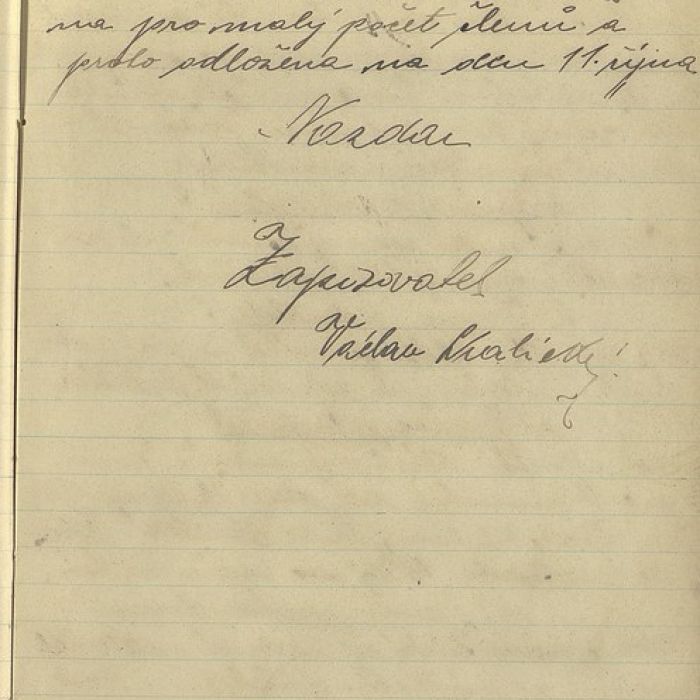 na pro malý počet členů a
proto odložena na den 11. října
Nazdar
Zapisovatel
Václav Skalický